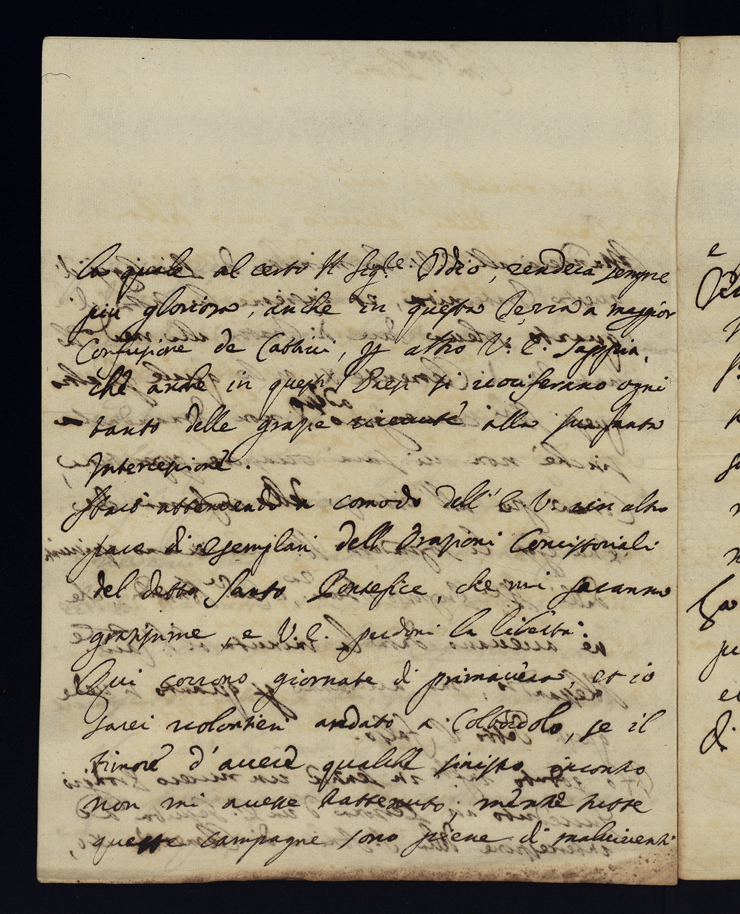 la quale al certo il Sig.re Iddio, renderà sempre
più gloriosa, anche in questa Terra a maggior
Confusione de Cattivi, et altro V. E. sappia,
che anche in questi Paesi si riceverano ogni
tanto delle grazie ricevute alla sua santa
Intercessione.
Starò attendendo a comodo dell' E. V. un altro
paro di esemplari dell' Orazioni Concistoriali
del detto Santo Pontefice, che mi saranno
gratissime, e V. E. perdoni la libertà.
Qui corrono giornate di primavera, et io
sarei volontieri andato a Colbordolo, se il
timore d'avere qualche sinistro incontro
non mi avesse trattenuto, mentre tutte
queste campagne sono piene di malviventi